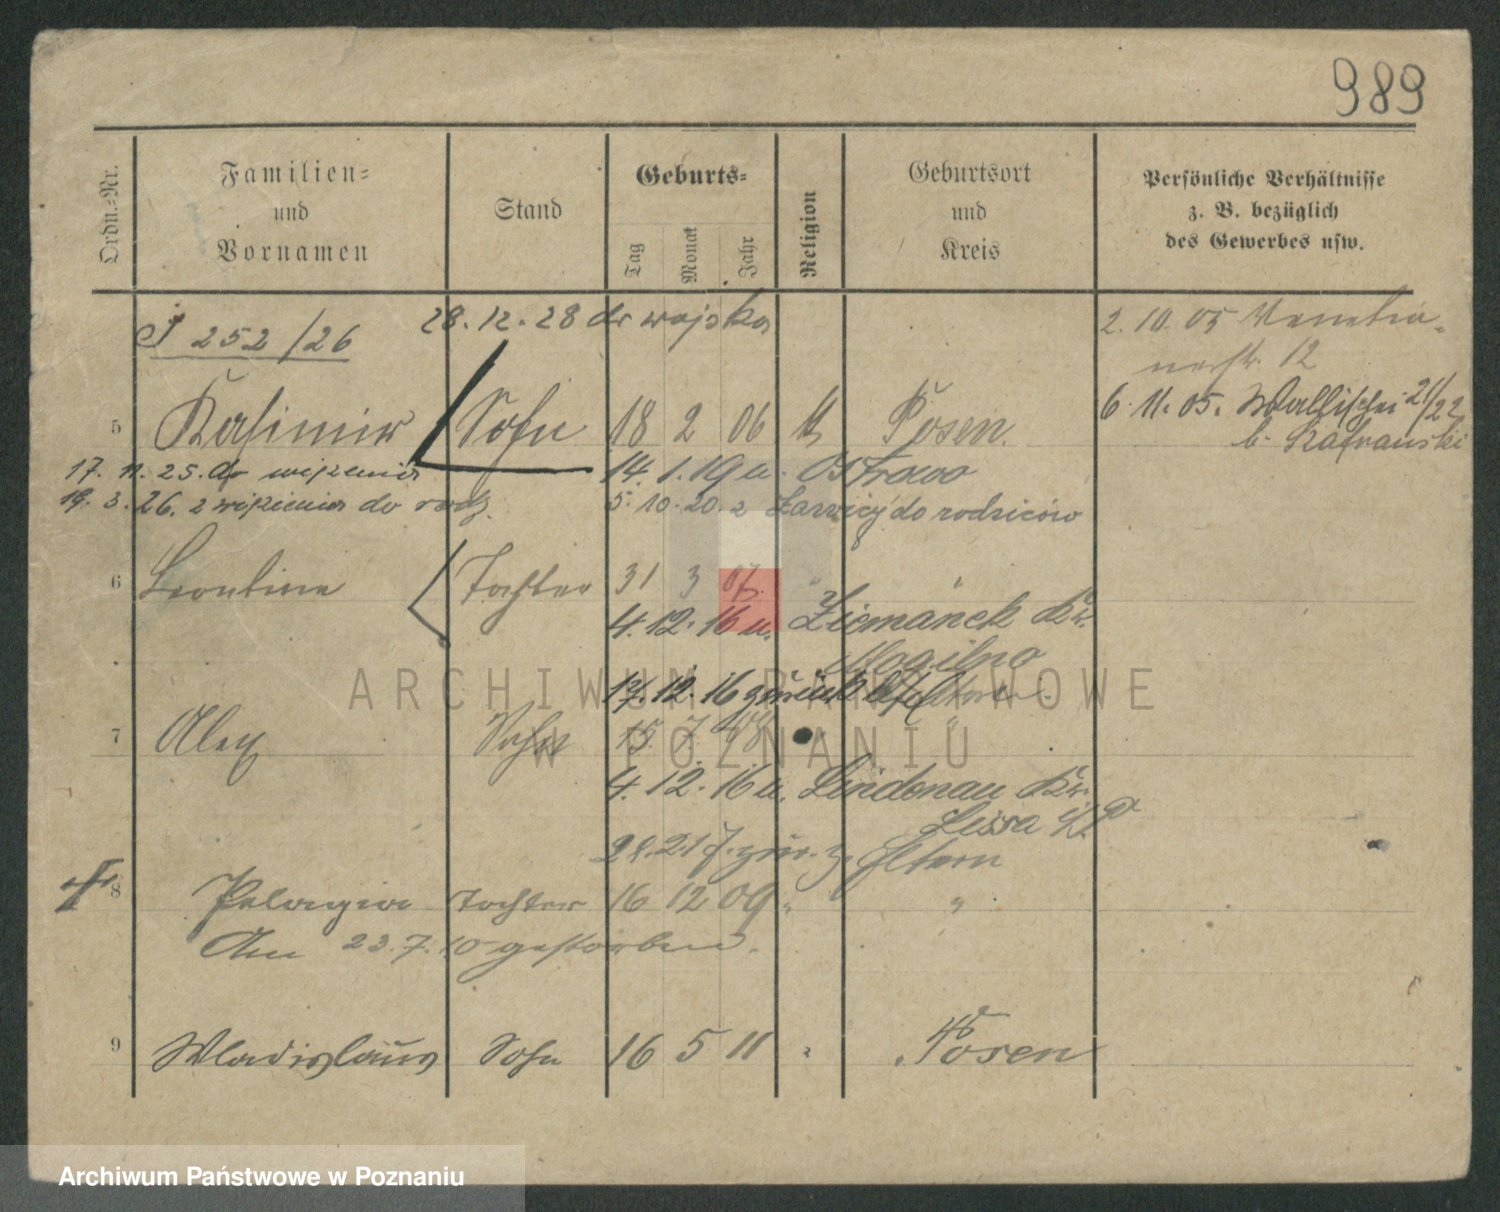 989
Ordn.-Nr.
Familien-
und
Vornamen
Stand
Geburts-
Tag
Monat
Jahr
Religion
Geburtsort
und
Kreis
Persönliche Verhältnisse
z. B. bezüglich
des Gewerbes usw.
J 252/26
28.12.28 do wojska
2.10.05 Venetia-
nerstr. 12
5 Kasimir Sohn 18 2 06 Posen
6.11.05. Wallischei 21/22
b. Szafranski
17. 11. 25. do więzienia
14. 1. 19 u. Ostrowo
19. 3. 26. z więzienia do rodz.
5. 10. 20 z Ławicy do rodziców
6 Leontine Tochter 31 3 07. "
4. 12. 16 u. Ziemanek Kr.
Mogilno
14. 12. 16 zurück
ARCHIWUM PAŃSTWOWE
W POZNANIU
7 Alex Sohn 15. 7. 08 "
4. 12. 16 u. Lindenau Kr.
Lissa i/P
28.2.17. zur. z. Eltern
8 Pelagia Tochter 16 12 09 " "
Am 23.7.10 gestorben.
9 Wladislaus Sohn 16 5 11 " Posen
Archiwum Państwowe w Poznaniu